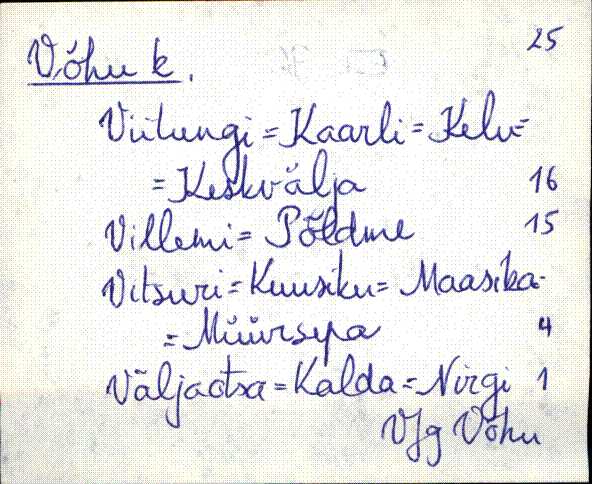 25
Võhu k.
Viitungi = Kaarli = Kelu =
= Keskvälja 16
Villemi = Põldme 15
Vitsuri = Kuusiku = Maasika-
= Müürsepa 4
Väljaotsa = Kalda = Nirgi 1
VJg Võhu